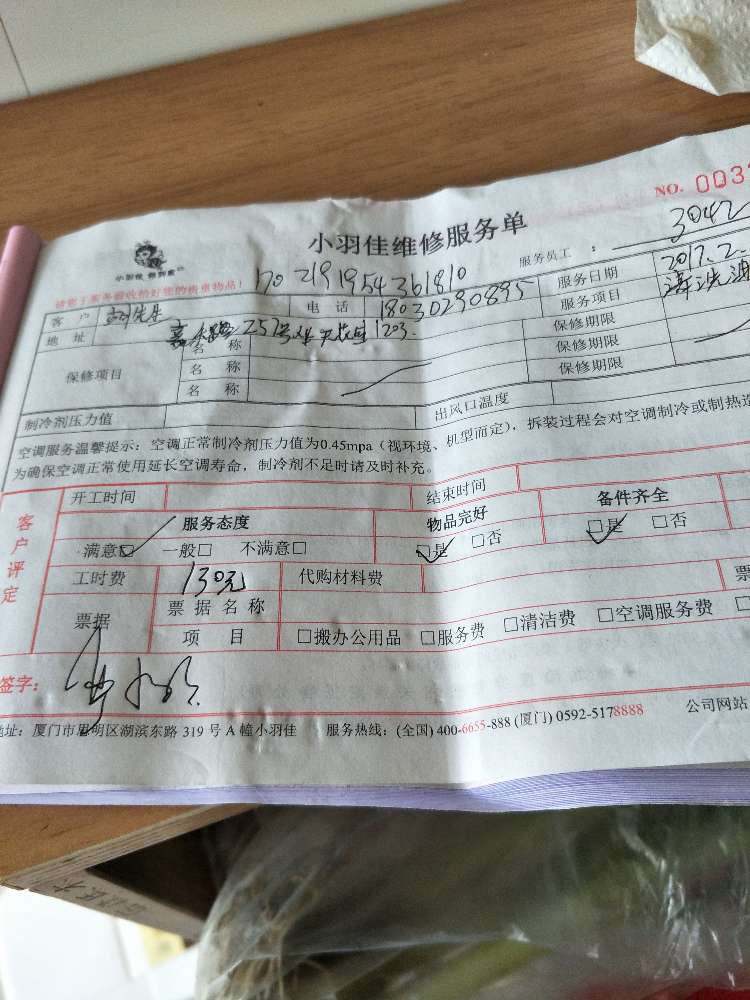 NO. 003
小羽佳维修服务单
服务员工 : 3042
170219195436 1810
客户 先生 电话 18030290895 服务日期 2017.2.
地址 257号 1203. 服务项目 清洗油
保修项目 名称 保修期限
名称 保修期限
名称 保修期限
制冷剂压力值 出风口温度
空调服务温馨提示：空调正常制冷剂压力值为0.45mpa（视环境、机型而定），拆装过程会对空调制冷或制热造
为确保空调正常使用延长空调寿命，制冷剂不足时请及时补充。
客户评定
开工时间 结束时间
服务态度 物品完好 备件齐全
满意□ 一般□ 不满意□ □是 □否 □是 □否
工时费 130元 代购材料费
票据 票据名称 票
项目 □搬办公用品 □服务费 □清洁费 □空调服务费 □
签字：
地址：厦门市思明区湖滨东路 319 号 A 幢小羽佳 服务热线：(全国) 400-6655-888 (厦门) 0592-5178888 公司网站